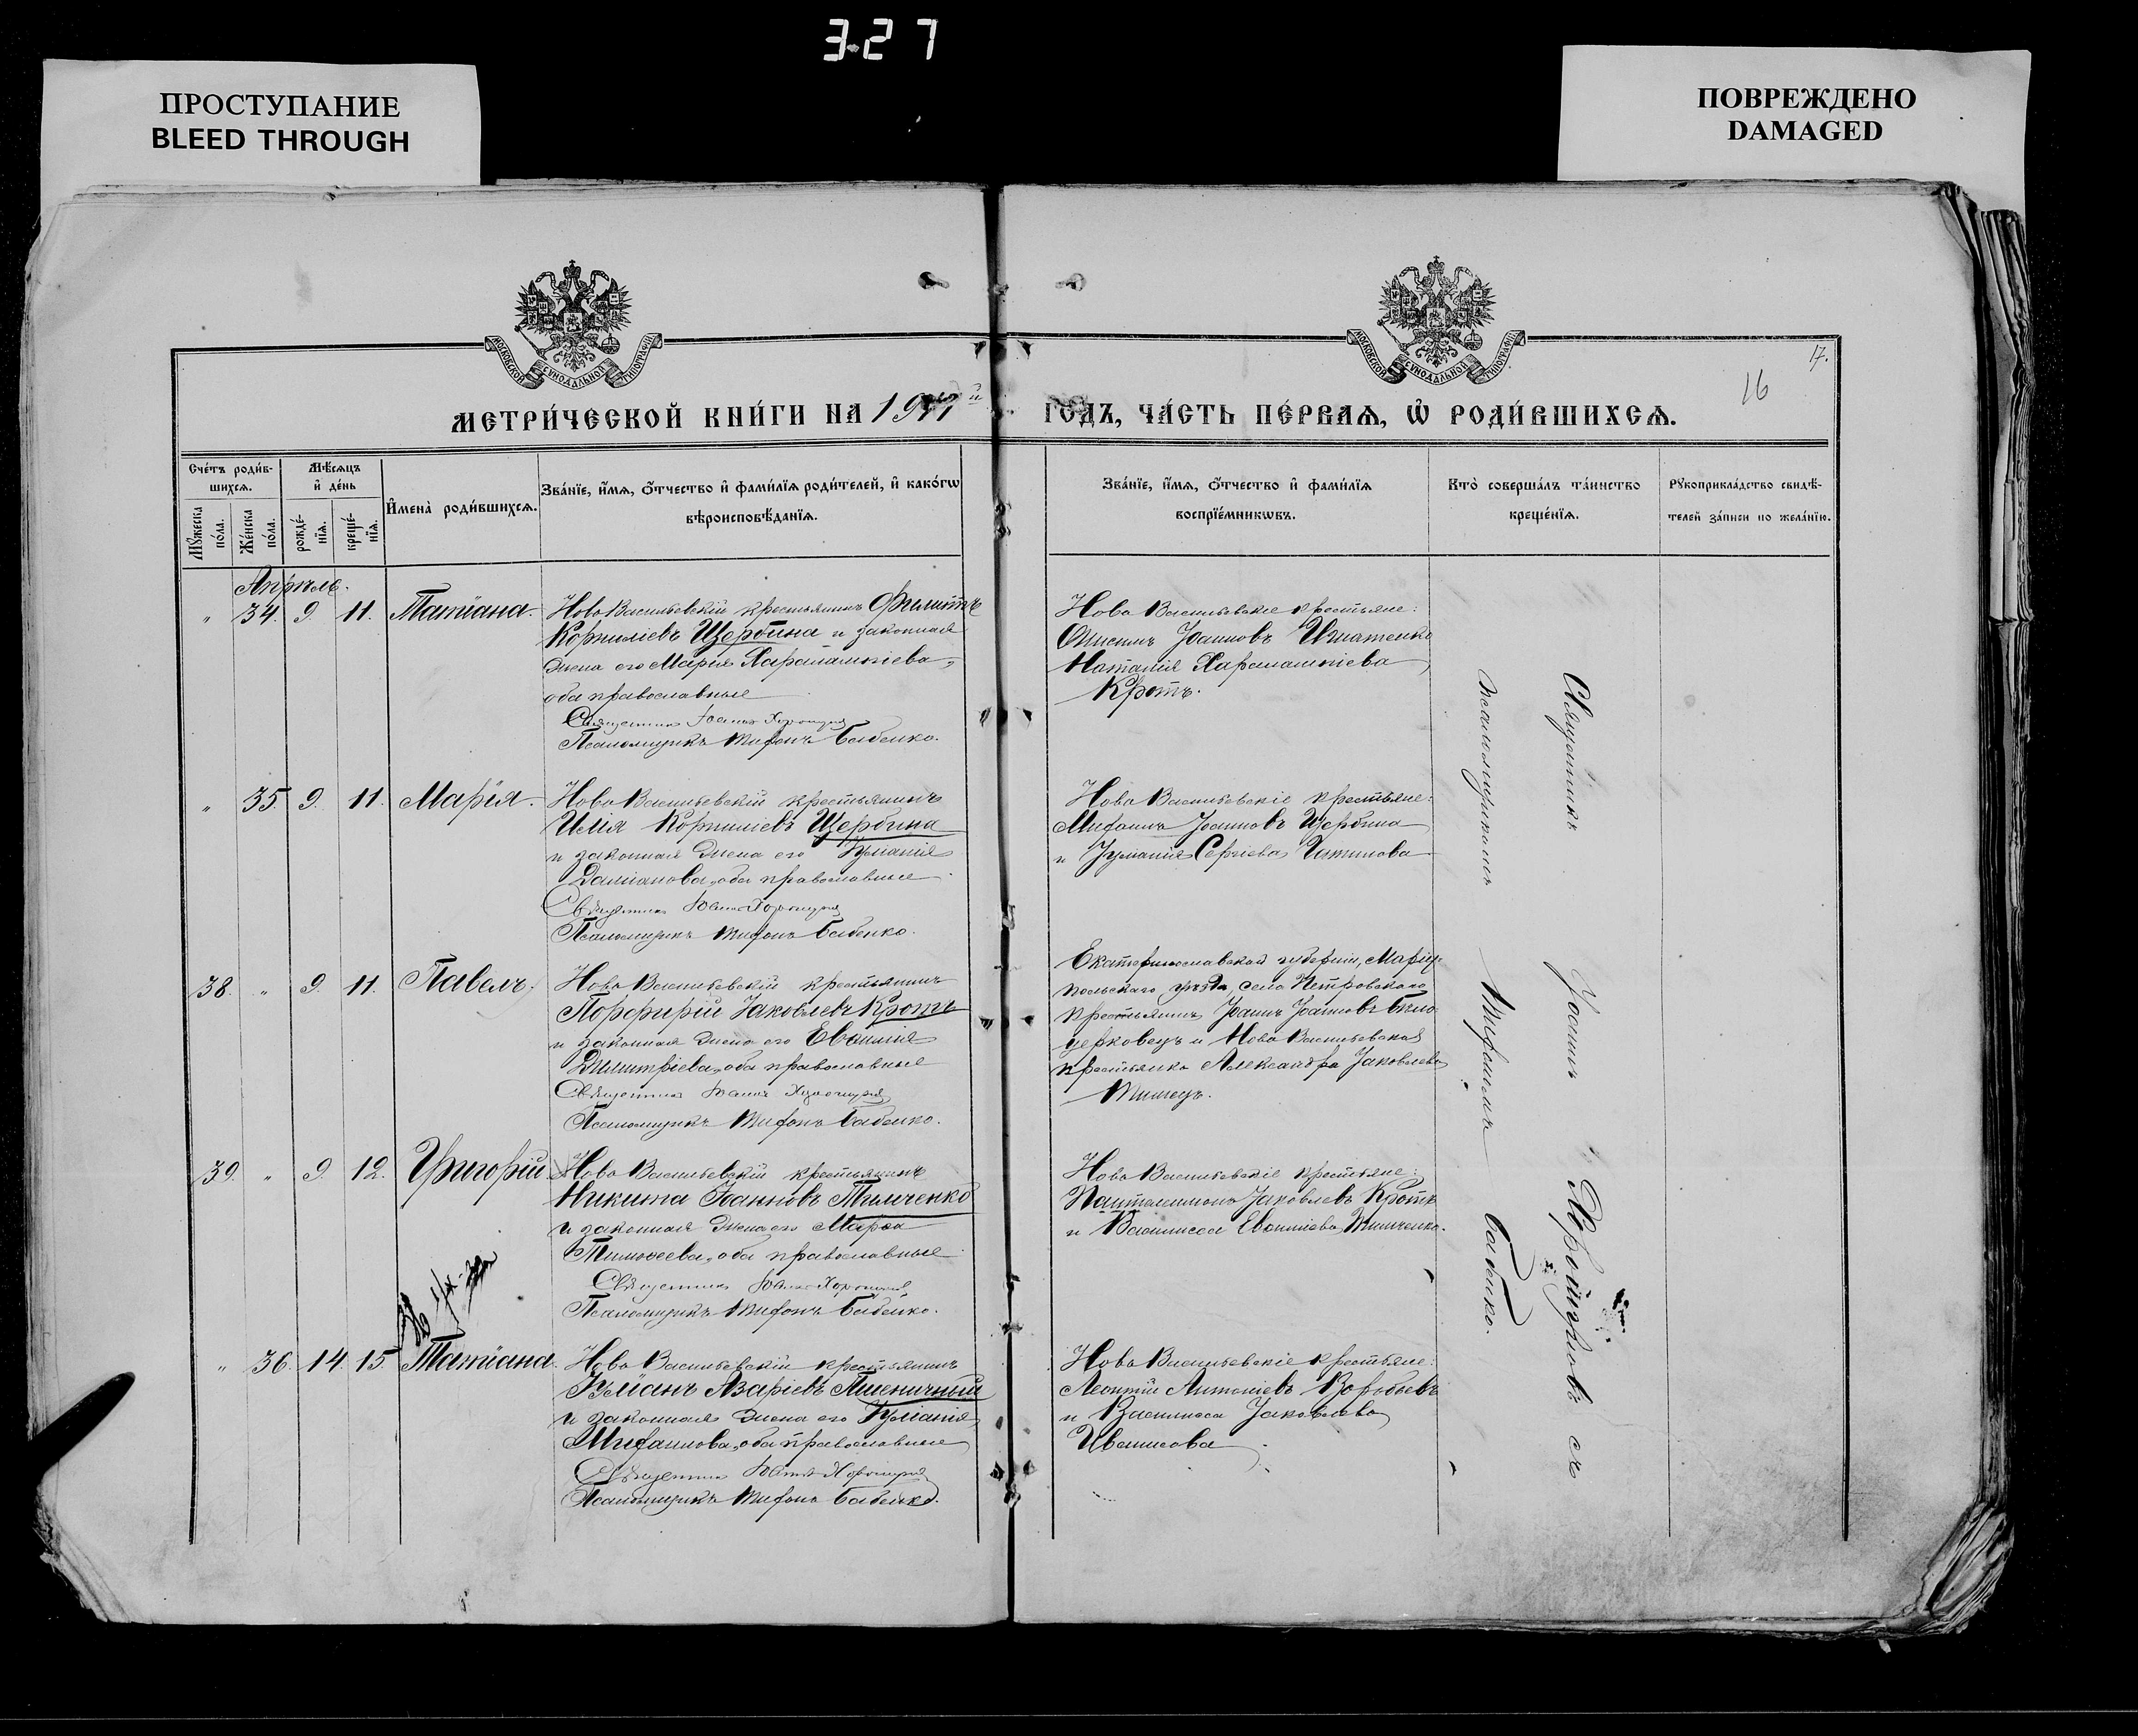 3-27
ПРОСТУПАНИЕ
BLEED THROUGH
ПОВРЕЖДЕНО
DAMAGED
МОСКОВСКОЙ СѴНОДАЛЬНОЙ ТИПОГРАФІИ
МОСКОВСКОЙ СѴНОДАЛЬНОЙ ТИПОГРАФІИ
17.
16
МЕТРИ́ЧЕСКОЙ КНИ́ГИ НА 19 й ГОДЪ, ЧА́СТЬ ПЕ́РВАѦ, Ѡ РОДИ́ВШИХСѦ.
Сче́тъ роди́в-
шихсѧ.
Мꙋ́жеска
по́ла.
Же́нска
по́ла.
Мѣ́сѧцъ
и҆ де́нь
рожде́-
нїѧ.
креще́-
нїѧ.
И҆мена̀ роди́вшихсѧ.
Зва́нїе, и҆́мѧ, ѻ҆́тчество и҆ фами́лїѧ роди́телей, и҆ како́гѡ
вѣроисповѣ́данїѧ.
Зва́нїе, и҆́мѧ, ѻ҆́тчество и҆ фами́лїѧ
воспрїе́мникѡвъ.
Кто̀ соверша́лъ та́инство
креще́нїѧ.
Рꙋкоприкла́дство свидѣ́-
телей за́писи по жела́нїю.
Апрѣль.
" 34. 9. 11. Татіана.
Ново Васильевскій крестьянинъ Филиппъ
Корниліевъ Щербина и законная
жена его Марія Харалампіева,
оба православные
Священникъ Іоаннъ
Псаломщикъ Трифонъ Бабенко.
Ново Васильевскіе крестьяне:
Онисимъ Іоанновъ Игнатенко
Наталія Харалампіева
Кротъ.
" 35. 9. 11. Марія.
Ново Васильевскій крестьянинъ
Илія Корниліевъ Щербина
и законная жена его Іуліанія
Даміанова, оба православные
Священникъ Іоаннъ
Псаломщикъ Трифонъ Бабенко.
Ново Васильевскіе крестьяне:
Іоанновъ Щербина
и Іуліанія Сергіева
38. " 9. 11. Павелъ.
Ново Васильевскій крестьянинъ
Порфирій Іаковлевъ Кротъ
и законная жена его
Димитріева, оба православные
Священникъ Іоаннъ
Псаломщикъ Трифонъ Бабенко.
Екатеринославской губерніи, Маріу-
польскаго уѣзда, села Петровскаго
крестьянинъ Іоаннъ Іоанновъ Бѣло-
церковецъ и Ново Васильевская
крестьянка Александра Іаковлева
39. " 9. 12. Григорій
Ново Васильевскій крестьянинъ
Никита Іоанновъ Тимченко
и законная жена его Марѳа
Тимоѳеева, оба православные
Священникъ Іоаннъ
Псаломщикъ Трифонъ Бабенко.
Ново Васильевскіе крестьяне:
Пантелеимонъ Іаковлевъ Кротъ
и Василисса Тимченко.
" 36. 14. 15. Татіана.
Ново Васильевскій крестьянинъ
Іуліанъ Азаріевъ Пшеничный
и законная жена его Іуліанія
оба православные
Священникъ Іоаннъ
Псаломщикъ Трифонъ Бабенко.
Ново Васильевскіе крестьяне:
Леонтій Антоніевъ Воробьевъ
и Василисса Іаковлева
Священникъ Іоаннъ съ
псаломщикомъ Трифономъ Бабенко.